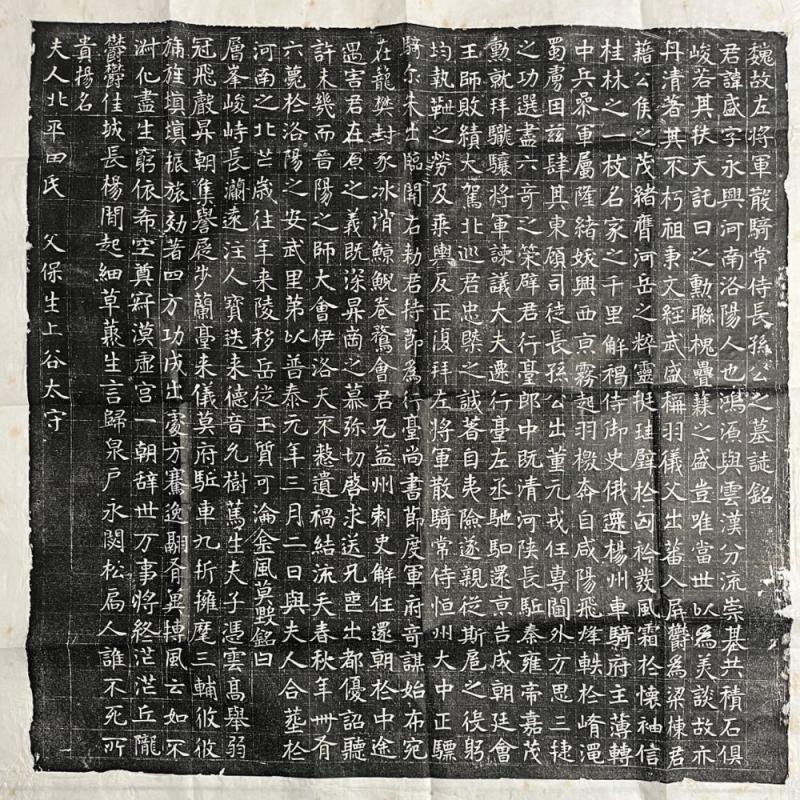 魏故左將軍散騎常侍長孫公之墓誌銘
君諱盛字永興河南洛陽人也鴻源與雲漢分流崇基共積石俱
峻若其秩天託日之勳聯槐疊蘇之盛豈唯當世以為美談故亦
丹清著其不朽祖秉文經武盛稱羽儀父出蕃入屏鬱為梁棟君
藉公侯之茂緒膺河岳之粹靈挺珪璧於匈衿發風霜於懷袖信
桂林之一枝名家之千里解褐侍御史俄遷楊州車騎府主薄轉
中兵參軍屬隆緒妖興西京霧起羽檄奔自咸陽飛烽軼於崤澠
蜀虜因茲肆其東顧司徒長孫公出董元戎任專閫外方思三捷
之功選盡六奇之策辟君行臺郎中既清河陝長駈秦雍帝嘉茂
勳就拜驍驤將軍諫議大夫遷行臺左丞馳駟還京告成朝廷會
王師敗績大駕北巡君忠槩之誠著自夷險遂親從斯扈之役躬
均執靮之勞及乘輿反正復拜左將軍散騎常侍恒州大中正驃
騎尒朱出臨開右勑君持節為行臺尚書節度軍府奇謀始布宛
在龍樊封豕冰消鯨鯢卷鶩會君兄益州刺史解任還朝於中途
遇害君在原之義既深昇崗之慕弥切啓求送兄喪出都優詔聽
許未幾而晉陽之師大會伊洛天不憗遺禍結流矢春秋年卌有
六薨於洛陽之安武里第以普泰元年三月二日與夫人合葬於
河南之北芒歲往年来陵移岳徙玉質可淪金風莫毀銘曰
層峯峻峙長瀾遠注人寶迭来德音允樹篤生夫子憑雲高舉弱
冠飛聲昇朝集譽展步蘭臺来儀莫府駈車九折擁麾三輔攸攸
旆旌塡塡振旅効著四方功成出處方騫逸翮有冀摶風云如不
淋化盡生窮依希空奠寂漠虛宮一朝辞世万事將終茫茫丘隴
鬱鬱佳城長楊閒起細草藂生言歸泉戶永閟松扃人誰不死所
貴揚名
夫人北平田氏 父保生上谷太守